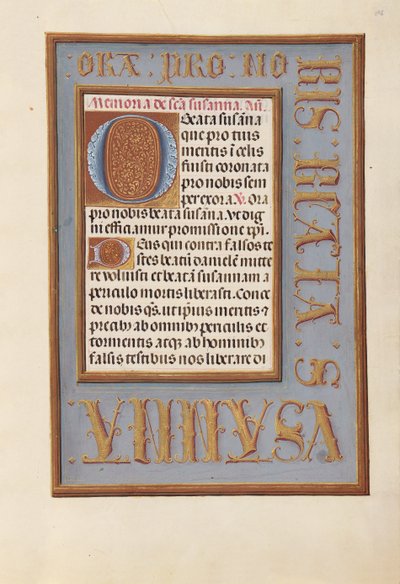 ·ORA·PRO·NO
BIS·BEATA·S
VSANNA·
Memoria de scā susanna. Añ.
O Beata susāna
que pro tuis
meritis ī celis
fuisti coronata
pro nobis sem
per exora. V. Ora
pro nobis beata susāna. Vt dig
ni efficiamur promissiōe xp̄i.
Deus qui contra falsos te
stes beatū danielem mitte
re voluisti et beatā susannam a
periculo mortis liberasti. Conce
de nobis qs. ut ip̄ius meritis et
precibꝫ ab omnibꝫ periculis et
tormentis atqꝫ ab hominibꝫ
falsis testibus nos liberare di